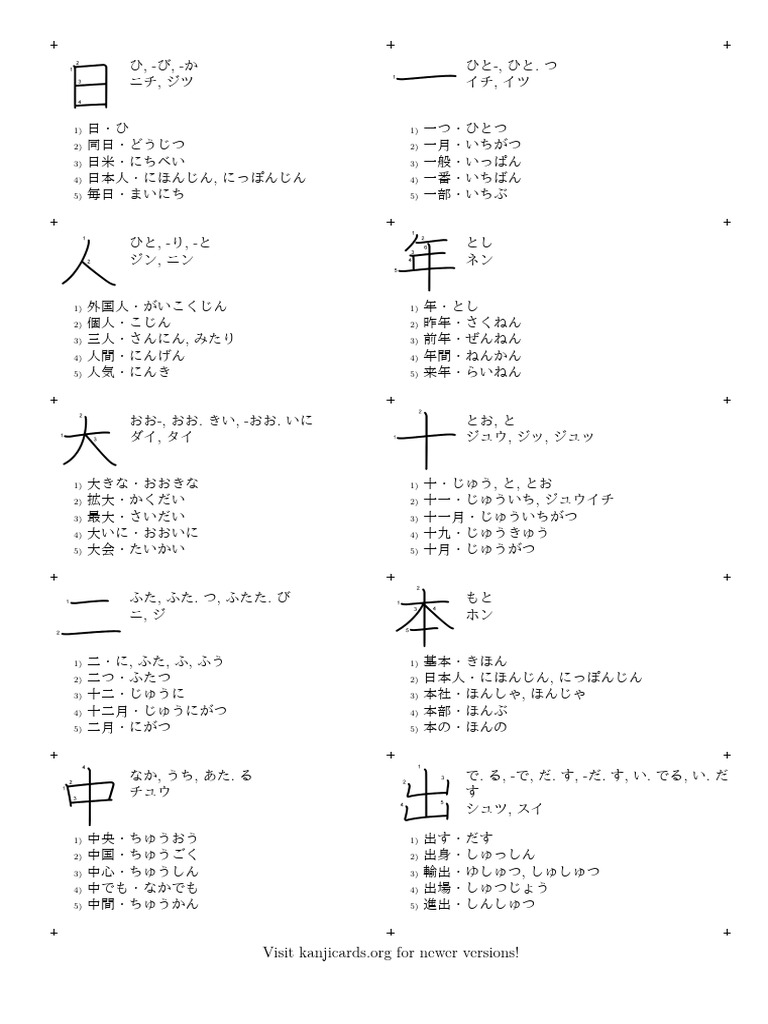 日
ひ, -び, -か
ニチ, ジツ
1) 日・ひ
2) 同日・どうじつ
3) 日米・にちべい
4) 日本人・にほんじん, にっぽんじん
5) 毎日・まいにち
一
ひと-, ひと. つ
イチ, イツ
1) 一つ・ひとつ
2) 一月・いちがつ
3) 一般・いっぱん
4) 一番・いちばん
5) 一部・いちぶ
人
ひと, -り, -と
ジン, ニン
1) 外国人・がいこくじん
2) 個人・こじん
3) 三人・さんにん, みたり
4) 人間・にんげん
5) 人気・にんき
年
とし
ネン
1) 年・とし
2) 昨年・さくねん
3) 前年・ぜんねん
4) 年間・ねんかん
5) 来年・らいねん
大
おお-, おお. きい, -おお. いに
ダイ, タイ
1) 大きな・おおきな
2) 拡大・かくだい
3) 最大・さいだい
4) 大いに・おおいに
5) 大会・たいかい
十
とお, と
ジュウ, ジッ, ジュッ
1) 十・じゅう, と, とお
2) 十一・じゅういち, ジュウイチ
3) 十一月・じゅういちがつ
4) 十九・じゅうきゅう
5) 十月・じゅうがつ
二
ふた, ふた. つ, ふたた. び
ニ, ジ
1) 二・に, ふた, ふ, ふう
2) 二つ・ふたつ
3) 十二・じゅうに
4) 十二月・じゅうにがつ
5) 二月・にがつ
本
もと
ホン
1) 基本・きほん
2) 日本人・にほんじん, にっぽんじん
3) 本社・ほんしゃ, ほんじゃ
4) 本部・ほんぶ
5) 本の・ほんの
中
なか, うち, あた. る
チュウ
1) 中央・ちゅうおう
2) 中国・ちゅうごく
3) 中心・ちゅうしん
4) 中でも・なかでも
5) 中間・ちゅうかん
出
で. る, -で, だ. す, -だ. す, い. でる, い. だ
す
シュツ, スイ
1) 出す・だす
2) 出身・しゅっしん
3) 輸出・ゆしゅつ, しゅしゅつ
4) 出場・しゅつじょう
5) 進出・しんしゅつ
Visit kanjicards.org for newer versions!